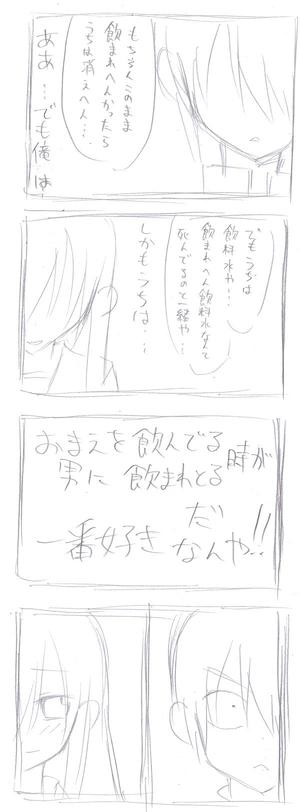 もちろんこのまま
飲まれへんかったら
うちは消えへん…
ああ…でも俺は
でもうちは
飲料水や…
飲まれへん飲料水なんて
死んでるのと一緒や…
しかもうちは…
おまえを飲んでる時が
男に飲まれとる
一番好き
だ
なんや!!